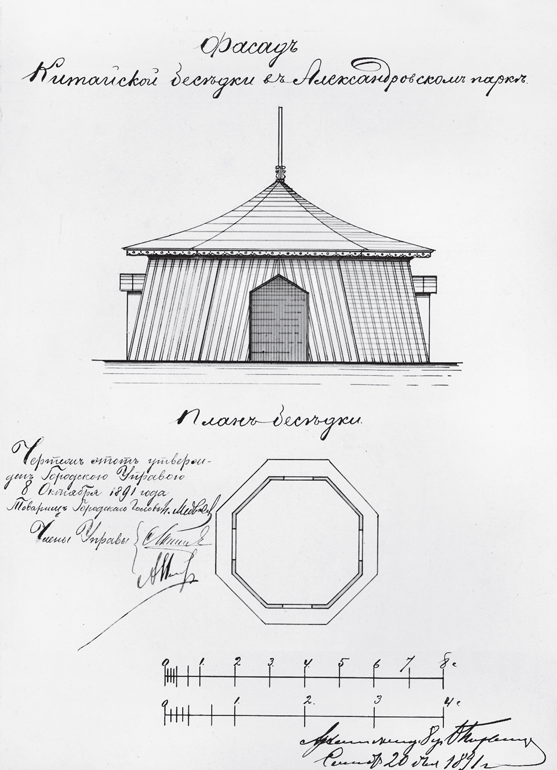 Фасадъ
Китайской бесѣдки въ Александровскомъ паркѣ.
Планъ бесѣдки.
Чертежъ этотъ утверж-
денъ Городскою Управою
8 Октября 1891 года
Товарищъ Городского Головы
Члены Управы
0 1. 2 3. 4 5. 6 7 8 с
0 1. 2. 3 4 с.
20 дня 1891 г